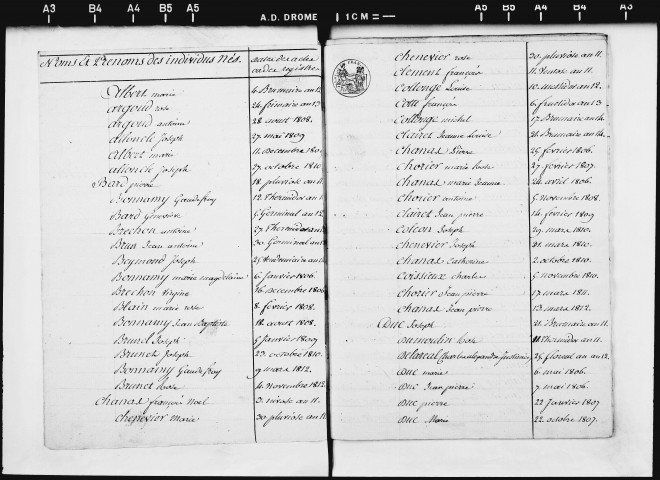 A3 B4 A4 B5 A5 A.D. DROME 1CM A5 B5 A4 B4 A3
Noms et Prenoms des individus Nés. dattes des actes
ordre registre
Albert marie 4 Brumaire an 12
argoud rose 24 frimaire an 13
argoud antoine 28 aout 1808.
alloncle Joseph 27 mai 1809
Albert marie 11 Decembre 180
alloncle Joseph 27 octobre 1810
Bard pierre 18 pluviose an 11
Bonnamy Gaudefroy 12 Thermidor an
Bard Genevieve 5 Germinal an 12
Brechon antoine 27 Thermidor an
Brun Jean antoine 30 Germinal an
Beymond Joseph 25 Vendemiaire an
Bonnamy marie magdelaine 6 Janvier 1806.
Brechon Virginie 16 Decembre 1806
Blain marie rose 8 fevrier 1808.
Bonnamy Jean Baptiste 18 aout 1808.
Brunel Joseph 5 Janvier 1809
Brunet Joseph 23 octobre 1810.
Bonnamy Gaudefroy 9 mars 1812.
Brunet rose 4 Novembre 1812
Chanas françois Noel 3 nivose an 11.
Chenevier marie 30 pluviose an 11
Chenevier rose 30 pluviose an 11.
Clement françois 11 Ventose an 11.
Collonge Louise 10 messidor an 12.
Cotte françois 6 fructidor an 13
Collonge michel 17 Brumaire an 14.
Clairet Jeanne Louise 21 Brumaire an 14.
Chanas Pierre 25 fevrier 1806.
Chorier marie rose 27 fevrier 1807.
Chanas marie Jeanne 24 avril 1806.
Chorier antoine 5 Novembre 1808.
Clairet Jean pierre 14 fevrier 1809
Coleon Joseph 29 mars 1810.
Chenevier Joseph 31 mars 1810.
Chanas Catherine 2 octobre 1810.
Coissieux Charles 5 Novembre 1810.
Chorier Jean pierre 17 mars 1811.
Chanas Jean pierre 13 mars 1812.
Duc Joseph 21 Brumaire an 11.
Dumoulin rose 11 Thermidor an 11.
Delareal Charles alexandre 25 floreal an 12.
Duc marie 6 mai 1806.
Duc Jean pierre 7 mai 1806.
Duc pierre 22 Janvier 1807
Duc Marie 22 octobre 1807.